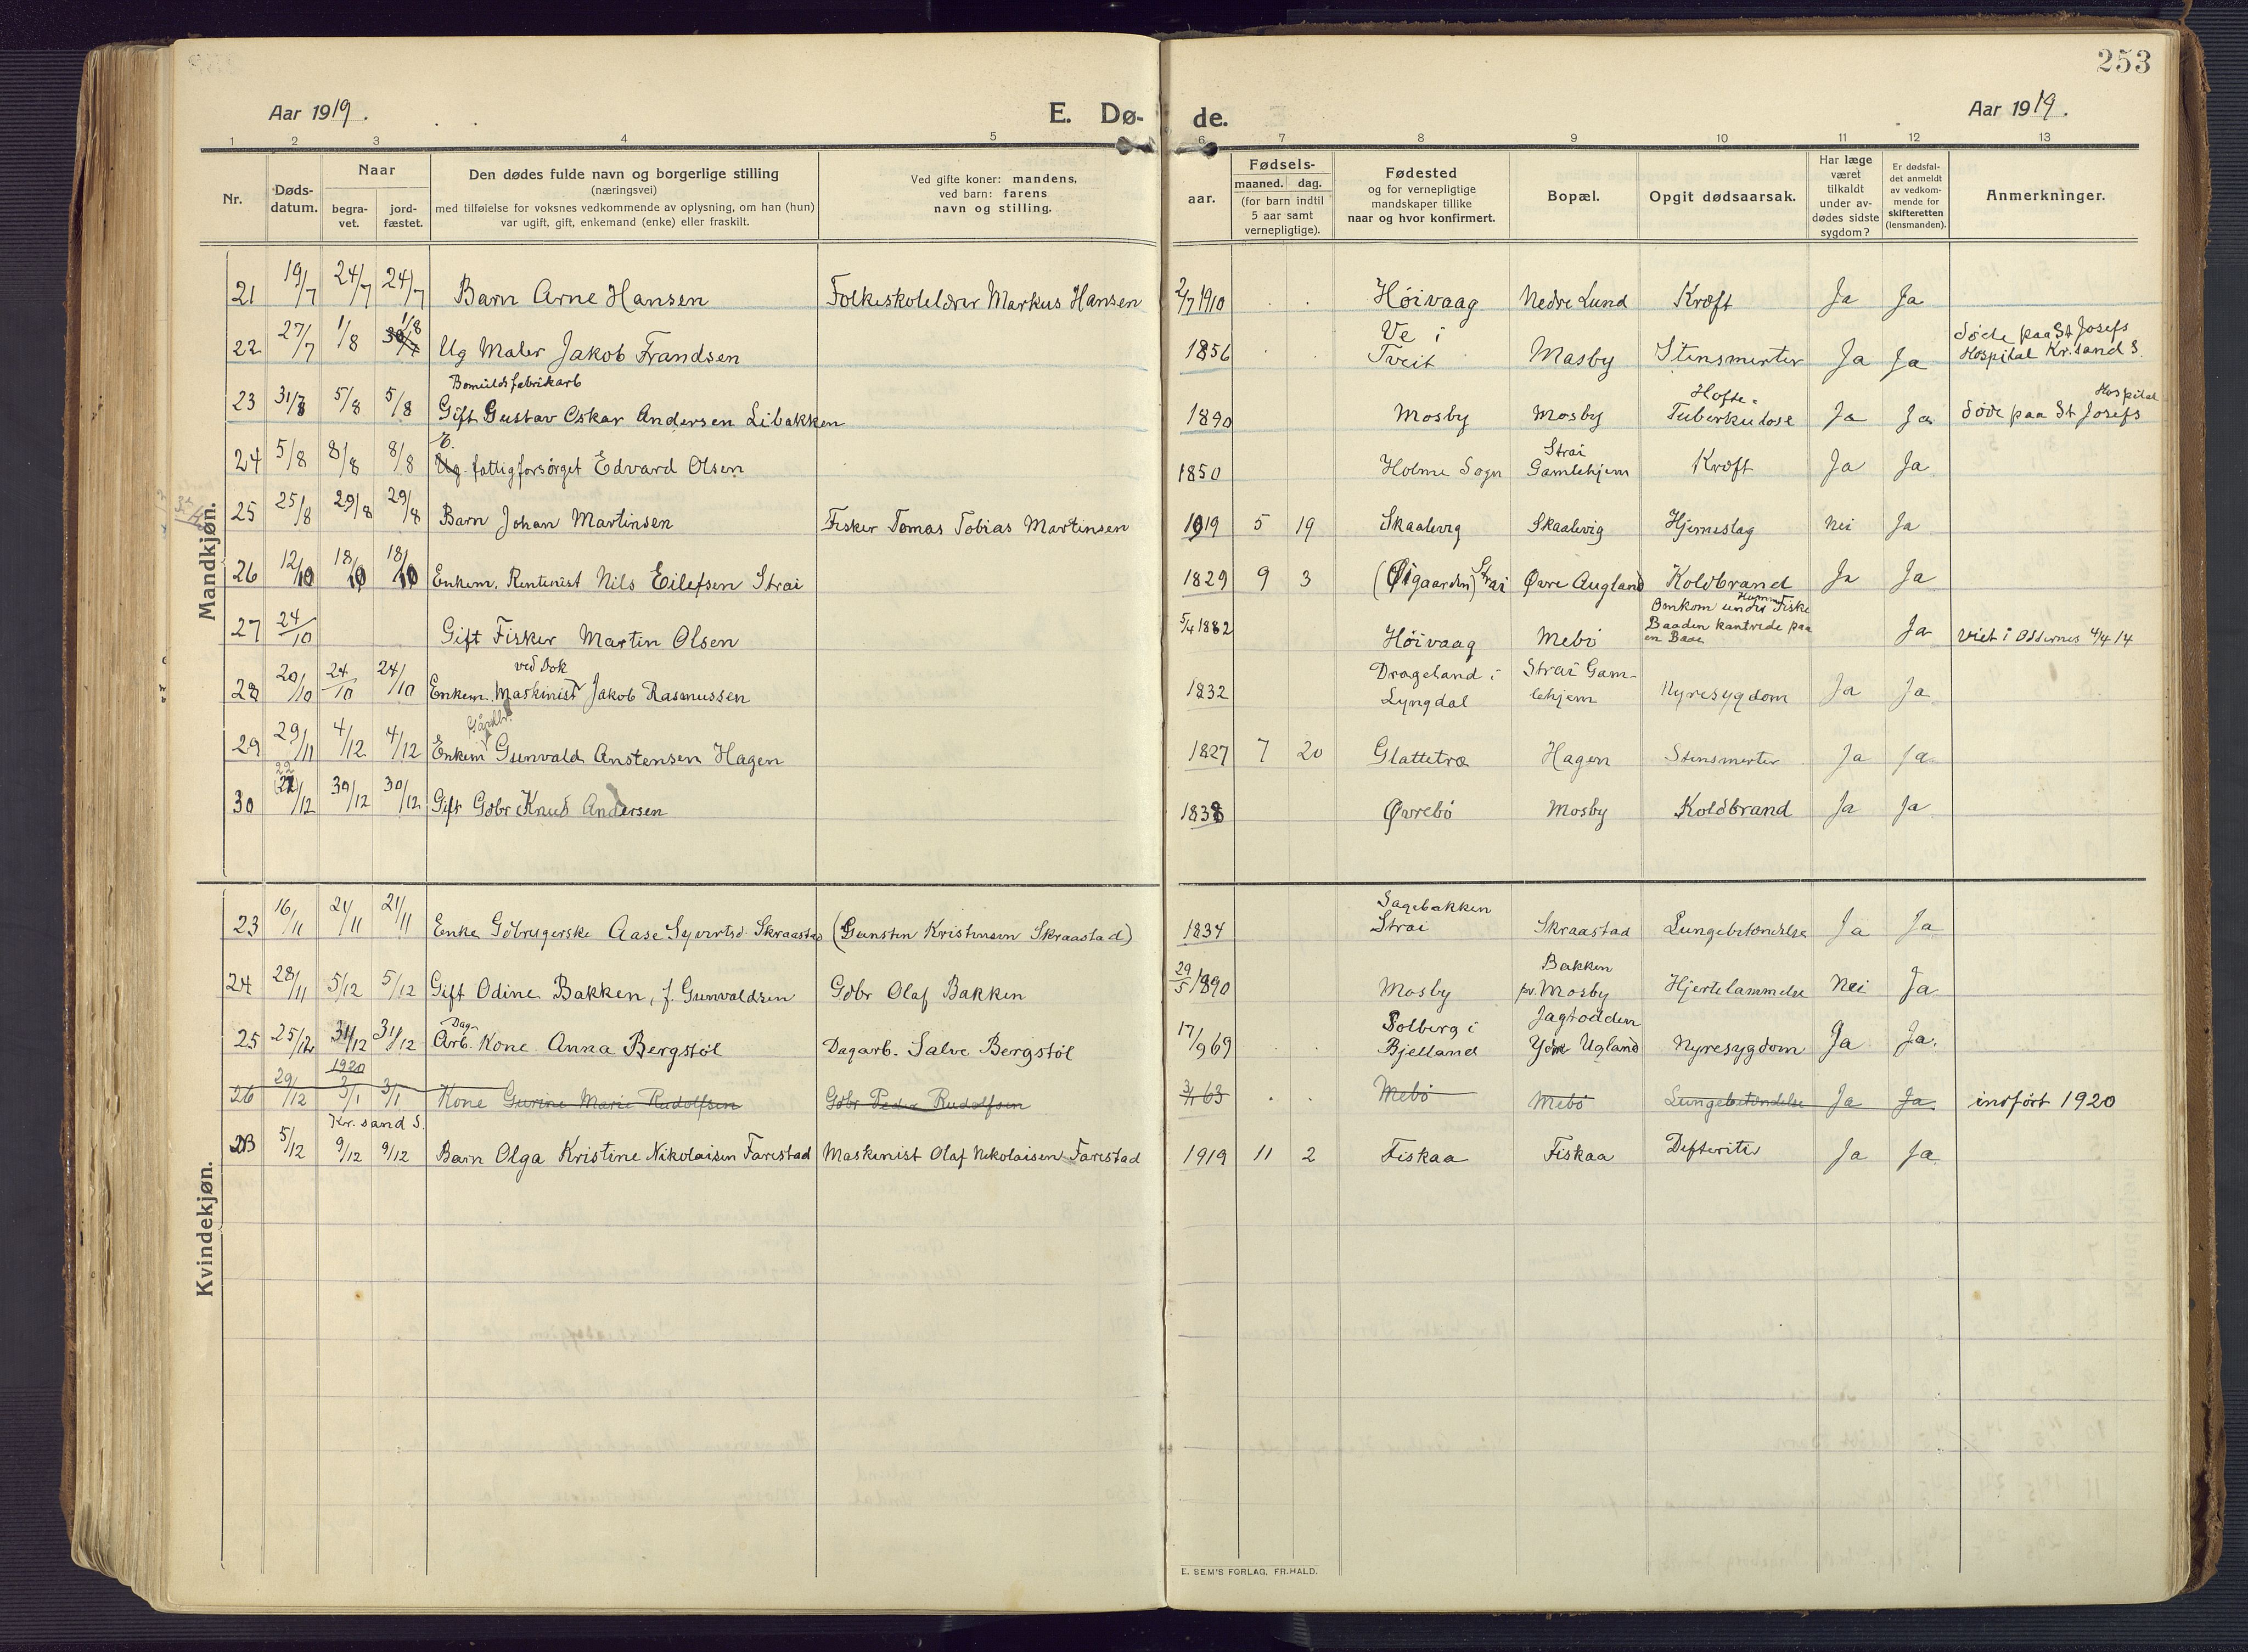 253
Aar 1919.
E. Dø-
de.
Aar 1919.
1 2 3 4 5 6 7 8 9 10 11 12 13
Nr.
Døds-
datum.
Naar
begra-
vet.
jord-
fæstet.
Den dødes fulde navn og borgerlige stilling
(næringsvei)
med tilføielse for voksnes vedkommende av oplysning, om han (hun)
var ugift, gift, enkemand (enke) eller fraskilt.
Ved gifte koner: mandens,
ved barn: farens
navn og stilling.
aar.
Fødsels-
maaned. dag.
(for barn indtil
5 aar samt
vernepligtige).
Fødested
og for vernepligtige
mandskaper tillike
naar og hvor konfirmert.
Bopæl.
Opgit dødsaarsak.
Har læge
været
tilkaldt
under av-
dødes sidste
sygdom?
Er dødsfal-
det anmeldt
av vedkom-
mende for
skifteretten
(lensmanden).
Anmerkninger.
Mandkjøn.
21 19/7 24/7 24/7 Barn Arne Hansen Folkeskolelærer Markus Hansen 2/7 1910 Høivaag Nedre Lund Kræft Ja Ja
22 27/7 1/8 1/8 Ug Maler Jakob Frandsen 1856 Ve i Tveit Mosby Stensmerter Ja Ja Døde paa St Josefs Hospital Kr.sand S.
23 31/7 5/8 5/8 Bomuldsfabrikarb Gift Gustav Oskar Andersen Libakken 1890 Mosby Mosby Hofte- Tuberkulose Ja Ja Døde paa St Josefs Hospital
24 5/8 8/8 8/8 E. Ug. fattigforsørget Edvard Olsen 1850 Holme Sogn Strai Gamlehjem Kræft Ja Ja
25 25/8 29/8 29/8 Barn Johan Martinsen Fisker Tomas Tobias Martinsen 1919 5 19 Skaalevig Skaalevig Hjerneslag Nei Ja
26 12/10 18/10 18/10 Enkem. Rentenist Nils Eilefsen Strai 1829 9 3 (Øigaarden) Strai Øvre Augland Koldbrand Ja Ja
27 24/10 Gift Fisker Martin Olsen 5/4 1882 Høivaag Mebø Omkom under Hummerfiske Baaden kantrede paa en Baae Ja Viet i Oddernes 4/4 14
28 20/10 24/10 24/10 Enkem. Maskinist ved Dok Jakob Rasmussen 1832 Drageland i Lyngdal Strai Gamlehjem Nyresygdom Ja Ja
29 29/11 4/12 4/12 Enkem Gårdbr. Gunvald Anstensen Hagen 1827 7 20 Glattetræ Hagen Stensmerter Ja Ja
30 22/12 30/12 30/12 Gift Gdbr Knud Andersen 1838 Øvrebö Mosby Koldbrand Ja Ja
Kvindekjøn.
23 16/11 21/11 21/11 Enke Gdbrugerske Aase Syvertsd. Skraastad (Gunsten Kristensen Skraastad) 1834 Sagebakken Strai Skraastad Lungebetændelse Ja Ja
24 28/11 5/12 5/12 Gift Odine Bakken, f. Gunvaldsen Gdbr Olaf Bakken 29/5 1890 Mosby Bakken pr. Mosby Hjertelammelse Nei Ja
25 25/12 31/12 31/12 Dag- Arb. Kone Anna Bergstøl Dagarb. Salve Bergstøl 17/9 69 Solberg i Bjelland Jagtodden Ugland Nyresygdom Ja Ja.
26 29/12 1920 3/1 3/1 Kone Gurine Marie Rudolfsen Gdbr Peder Rudolfsen 63 Mebö Mebö Lungebetændelse Ja Ja. indført 1920
Kr. sand S.
26 5/12 9/12 9/12 Barn Olga Kristine Nikolaisen Farestad Maskinist Olaf Nikolaisen Farestad 1919 11 2 Fiskaa Fiskaa Defterites Ja Ja
E. SEM'S FORLAG, FR.HALD.